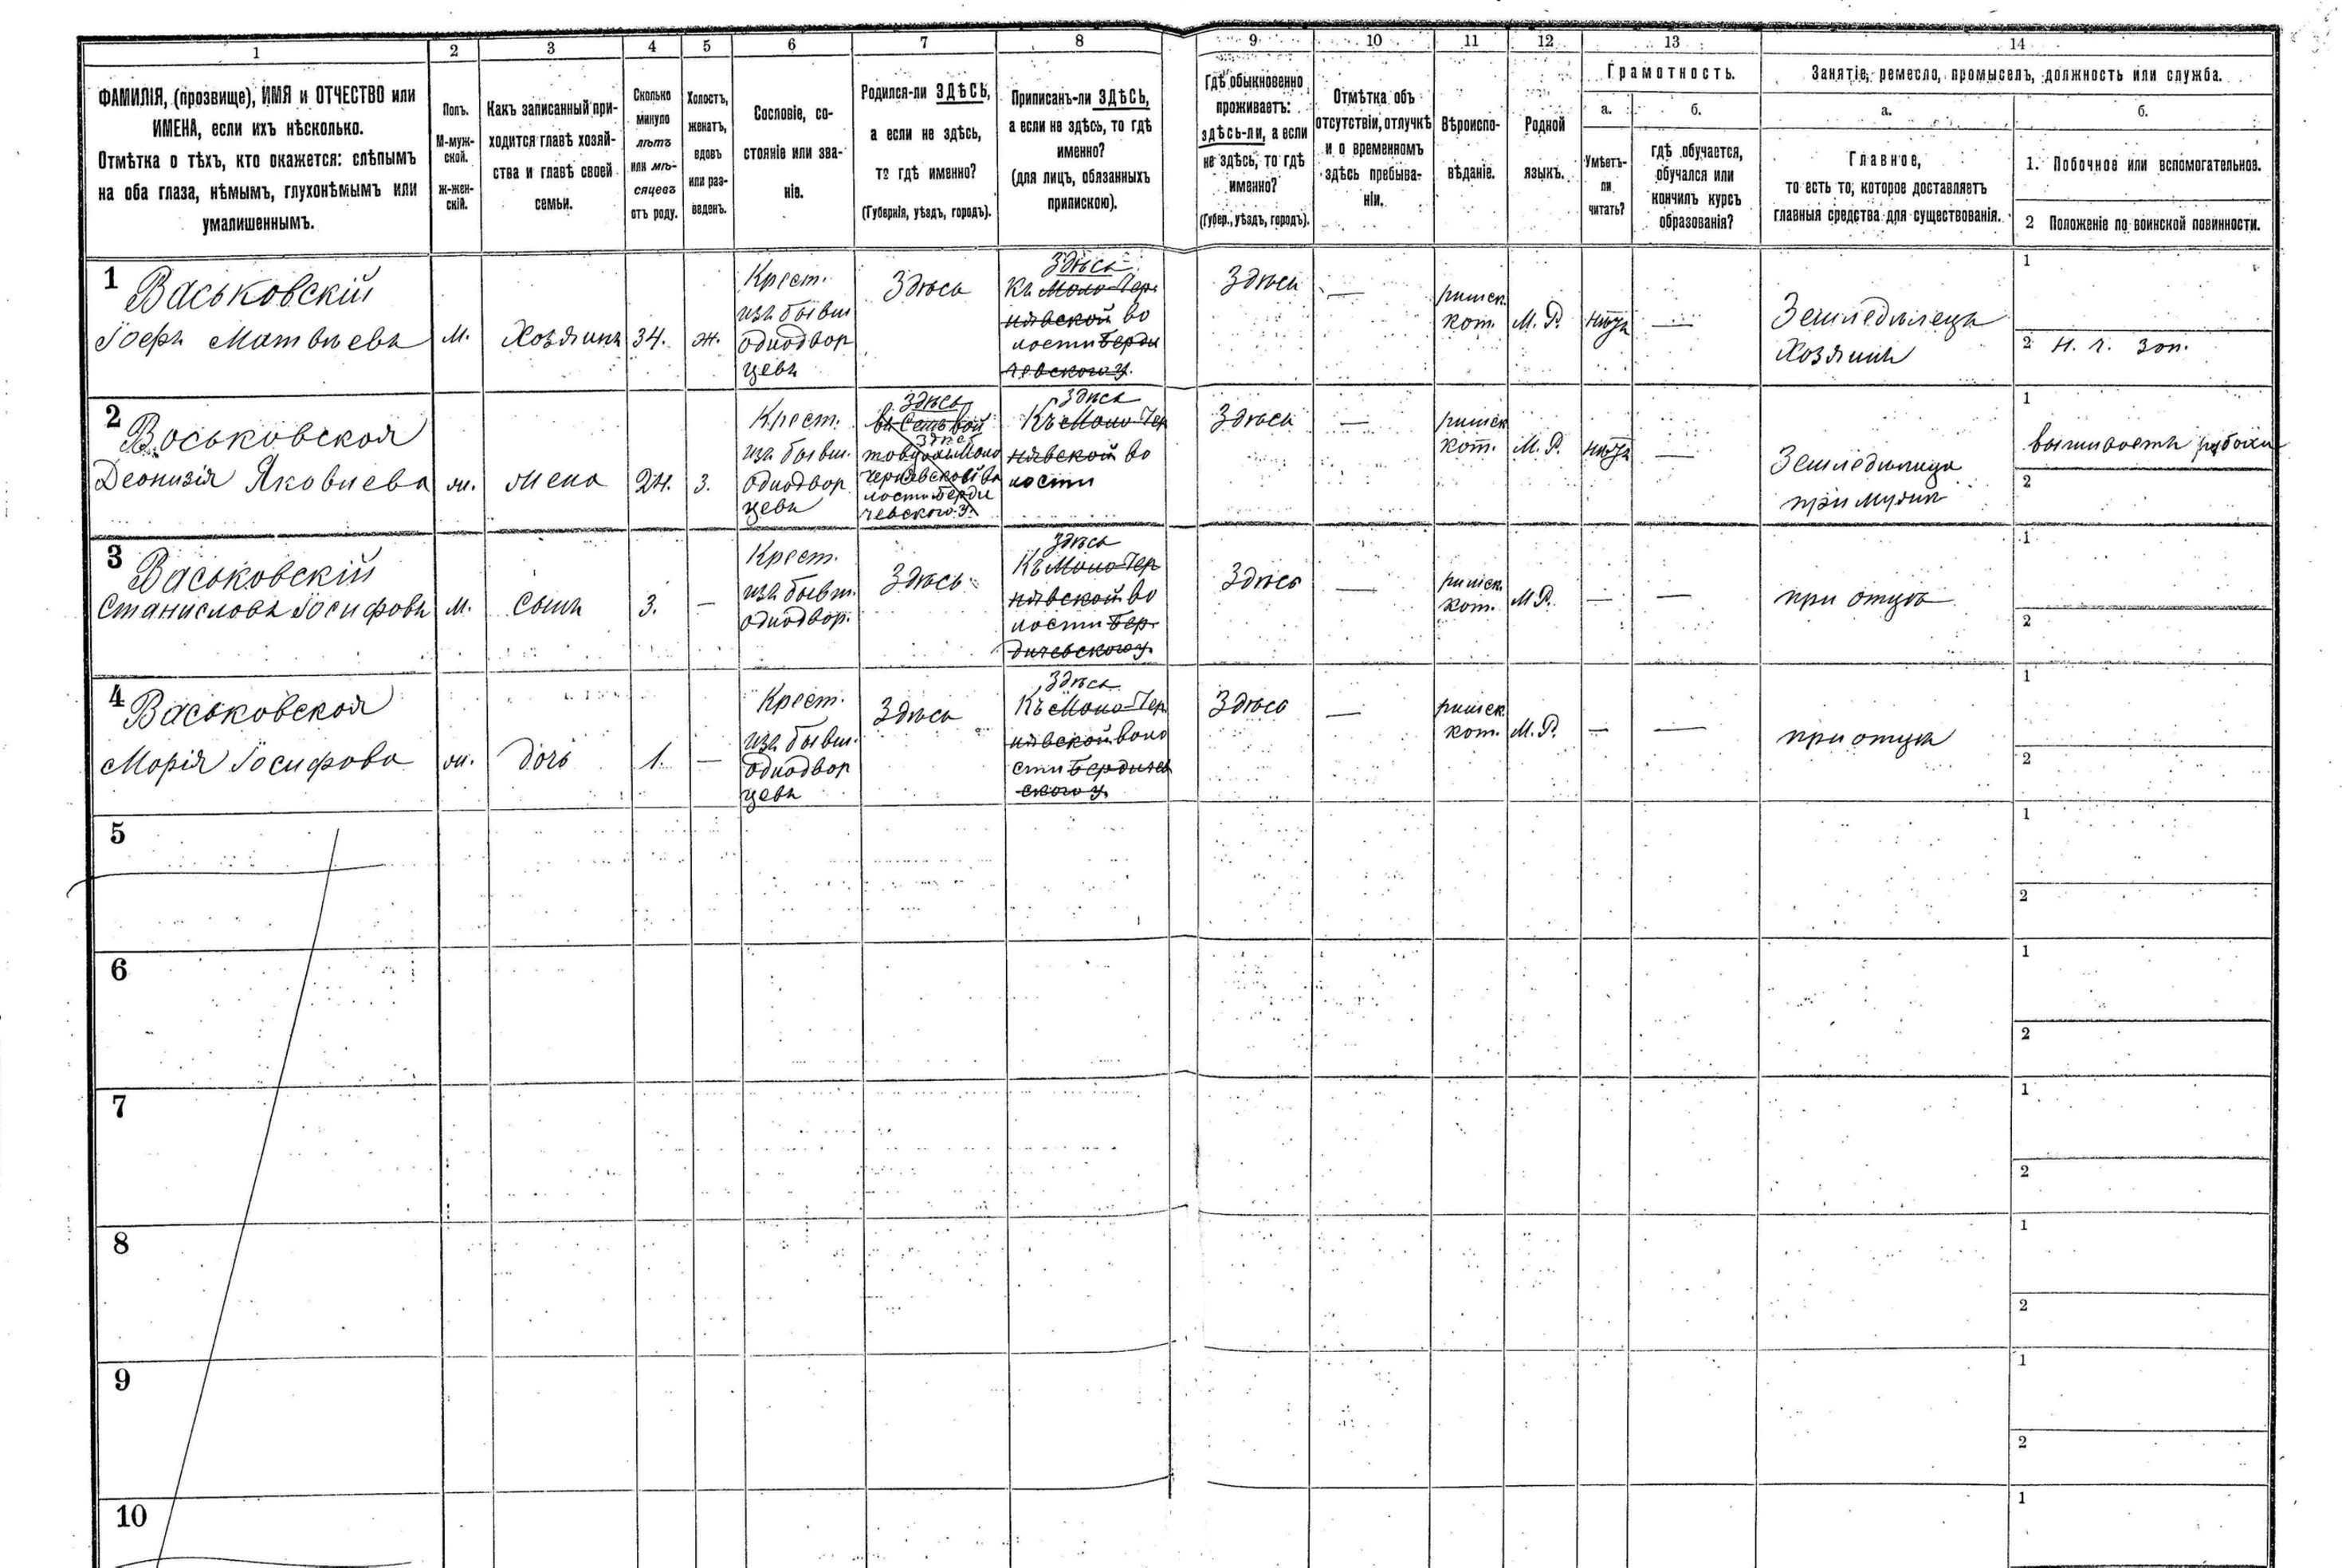 1 2 3 4 5 6 7 8 9 10 11 12 13 14
ФАМИЛІЯ, (прозвище), ИМЯ и ОТЧЕСТВО или
ИМЕНА, если ихъ нѣсколько.
Отмѣтка о тѣхъ, кто окажется: слѣпымъ
на оба глаза, нѣмымъ, глухонѣмымъ или
умалишеннымъ.
Полъ.
М-муж-
ской.
ж-жен-
скій.
Какъ записанный при-
ходится главѣ хозяй-
ства и главѣ своей
семьи.
Сколько
минуло
лѣтъ
или мѣ-
сяцевъ
отъ роду.
Холостъ,
женатъ,
вдовъ
или раз-
веденъ.
Сословіе, со-
стояніе или зва-
ніе.
Родился-ли ЗДѢСЬ,
а если не здѣсь,
то гдѣ именно?
(Губернія, уѣздъ, городъ).
Приписанъ-ли ЗДѢСЬ,
а если не здѣсь, то гдѣ
именно?
(для лицъ, обязанныхъ
припискою).
Гдѣ обыкновенно
проживаетъ:
здѣсь-ли, а если
не здѣсь, то гдѣ
именно?
(Губер., уѣздъ, городъ).
Отмѣтка объ
отсутствіи, отлучкѣ
и о временномъ
здѣсь пребыва-
ніи.
Вѣроиспо-
вѣданіе.
Родной
языкъ.
Грамотность.
а.
Умѣетъ-
ли
читать?
б.
гдѣ обучается,
обучался или
кончилъ курсъ
образованія?
Занятіе, ремесло, промыселъ, должность или служба.
а.
Главное,
то есть то, которое доставляетъ
главныя средства для существованія.
б.
1. Побочное или вспомогательное.
2 Положеніе по воинской повинности.
1
Васьковскій
Іосфъ Матвѣевъ
М.
Хозяинъ
34.
ж.
Крест.
изъ бывш
однодвор
цевъ
Здѣсь
Здѣсь
Къ Мало-Чер
нявской во
лости Берди
чевскаго у.
Здѣсь
—
римск.
кат.
М. Р.
нѣтъ
—
Земледѣлецъ
Хозяинъ
1
2 н. ч. зап.
2
Васьковская
Деонизія Яковлева
ж.
жена
24.
з.
Крест.
изъ бывш.
однодвор
цевъ
Здѣсь
здѣсь
чернявской во
лости Берди
чевскаго у.
Здѣсь
Къ Мало-Чер
нявской во
лости
Здѣсь
—
римск
кат.
М. Р.
нѣтъ
—
Земледѣлица
при мужѣ
1
вышиваетъ рубахи
2
3
Васьковскій
Станиславъ Іосифовъ
М.
сынъ
3.
—
Крест.
изъ бывш.
однодвор.
Здѣсь
Здѣсь
Къ Мало-Чер
нявской во
лости Бер-
дичевскаго у.
Здѣсь
—
римск.
кат.
М.Р.
—
—
при отцѣ
1
2
4
Васьковская
Марія Іосифова
ж.
дочь
1.
—
Крест.
изъ бывш.
однодвор
цевъ
Здѣсь
Здѣсь
Къ Мало-Чер
нявской воло
сти Бердичев
скаго у.
Здѣсь
—
римск.
кат.
М. Р.
—
—
при отцѣ
1
2
5
1
2
6
1
2
7
1
2
8
1
2
9
1
2
10
1